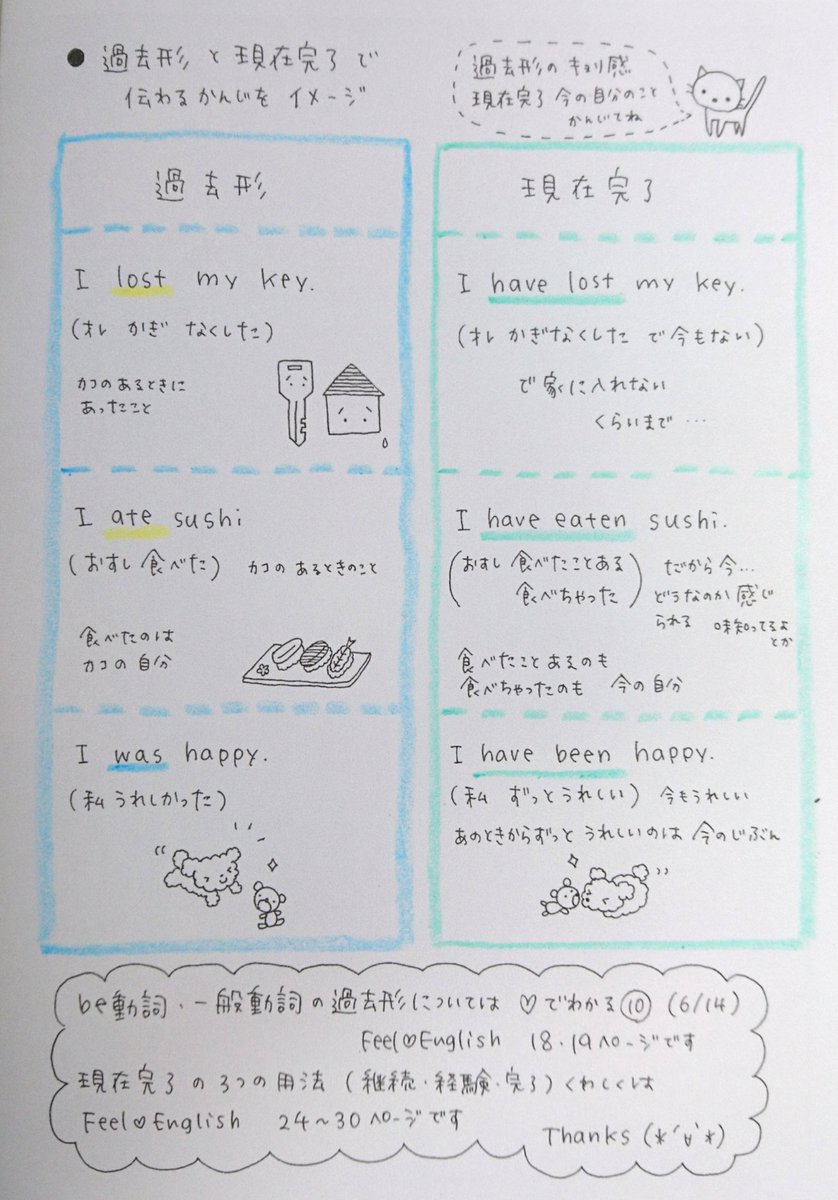 ● 過去形 と 現在完了 で
伝わる かんじを イメージ
過去形の キョリ感
現在完了 今の自分のこと
かんじてね
過去形
I lost my key.
(オレ かぎ なくした)
カコの あるときに
あったこと
I ate sushi
(おすし 食べた) カコの あるときのこと
食べたのは
カコの 自分
I was happy.
(私 うれしかった)
現在完了
I have lost my key.
(オレ かぎなくした で今もない)
で 家に入れない
くらいまで…
I have eaten sushi.
(おすし 食べたことある
食べちゃった)
だから 今…
どうなのか 感じ
られる 味知ってるよ
とか
食べたこと あるのも
食べちゃったのも 今の自分
I have been happy.
(私 ずっとうれしい) 今もうれしい
あのときからずっと うれしいのは 今のじぶん
be動詞・一般動詞の過去形については ♡でわかる⑩ (6/14)
Feel♡English 18・19ページです
現在完了の3つの用法 (継続・経験・完了) くわしくは
Feel♡English 24〜30ページです
Thanks (*´∀`*)